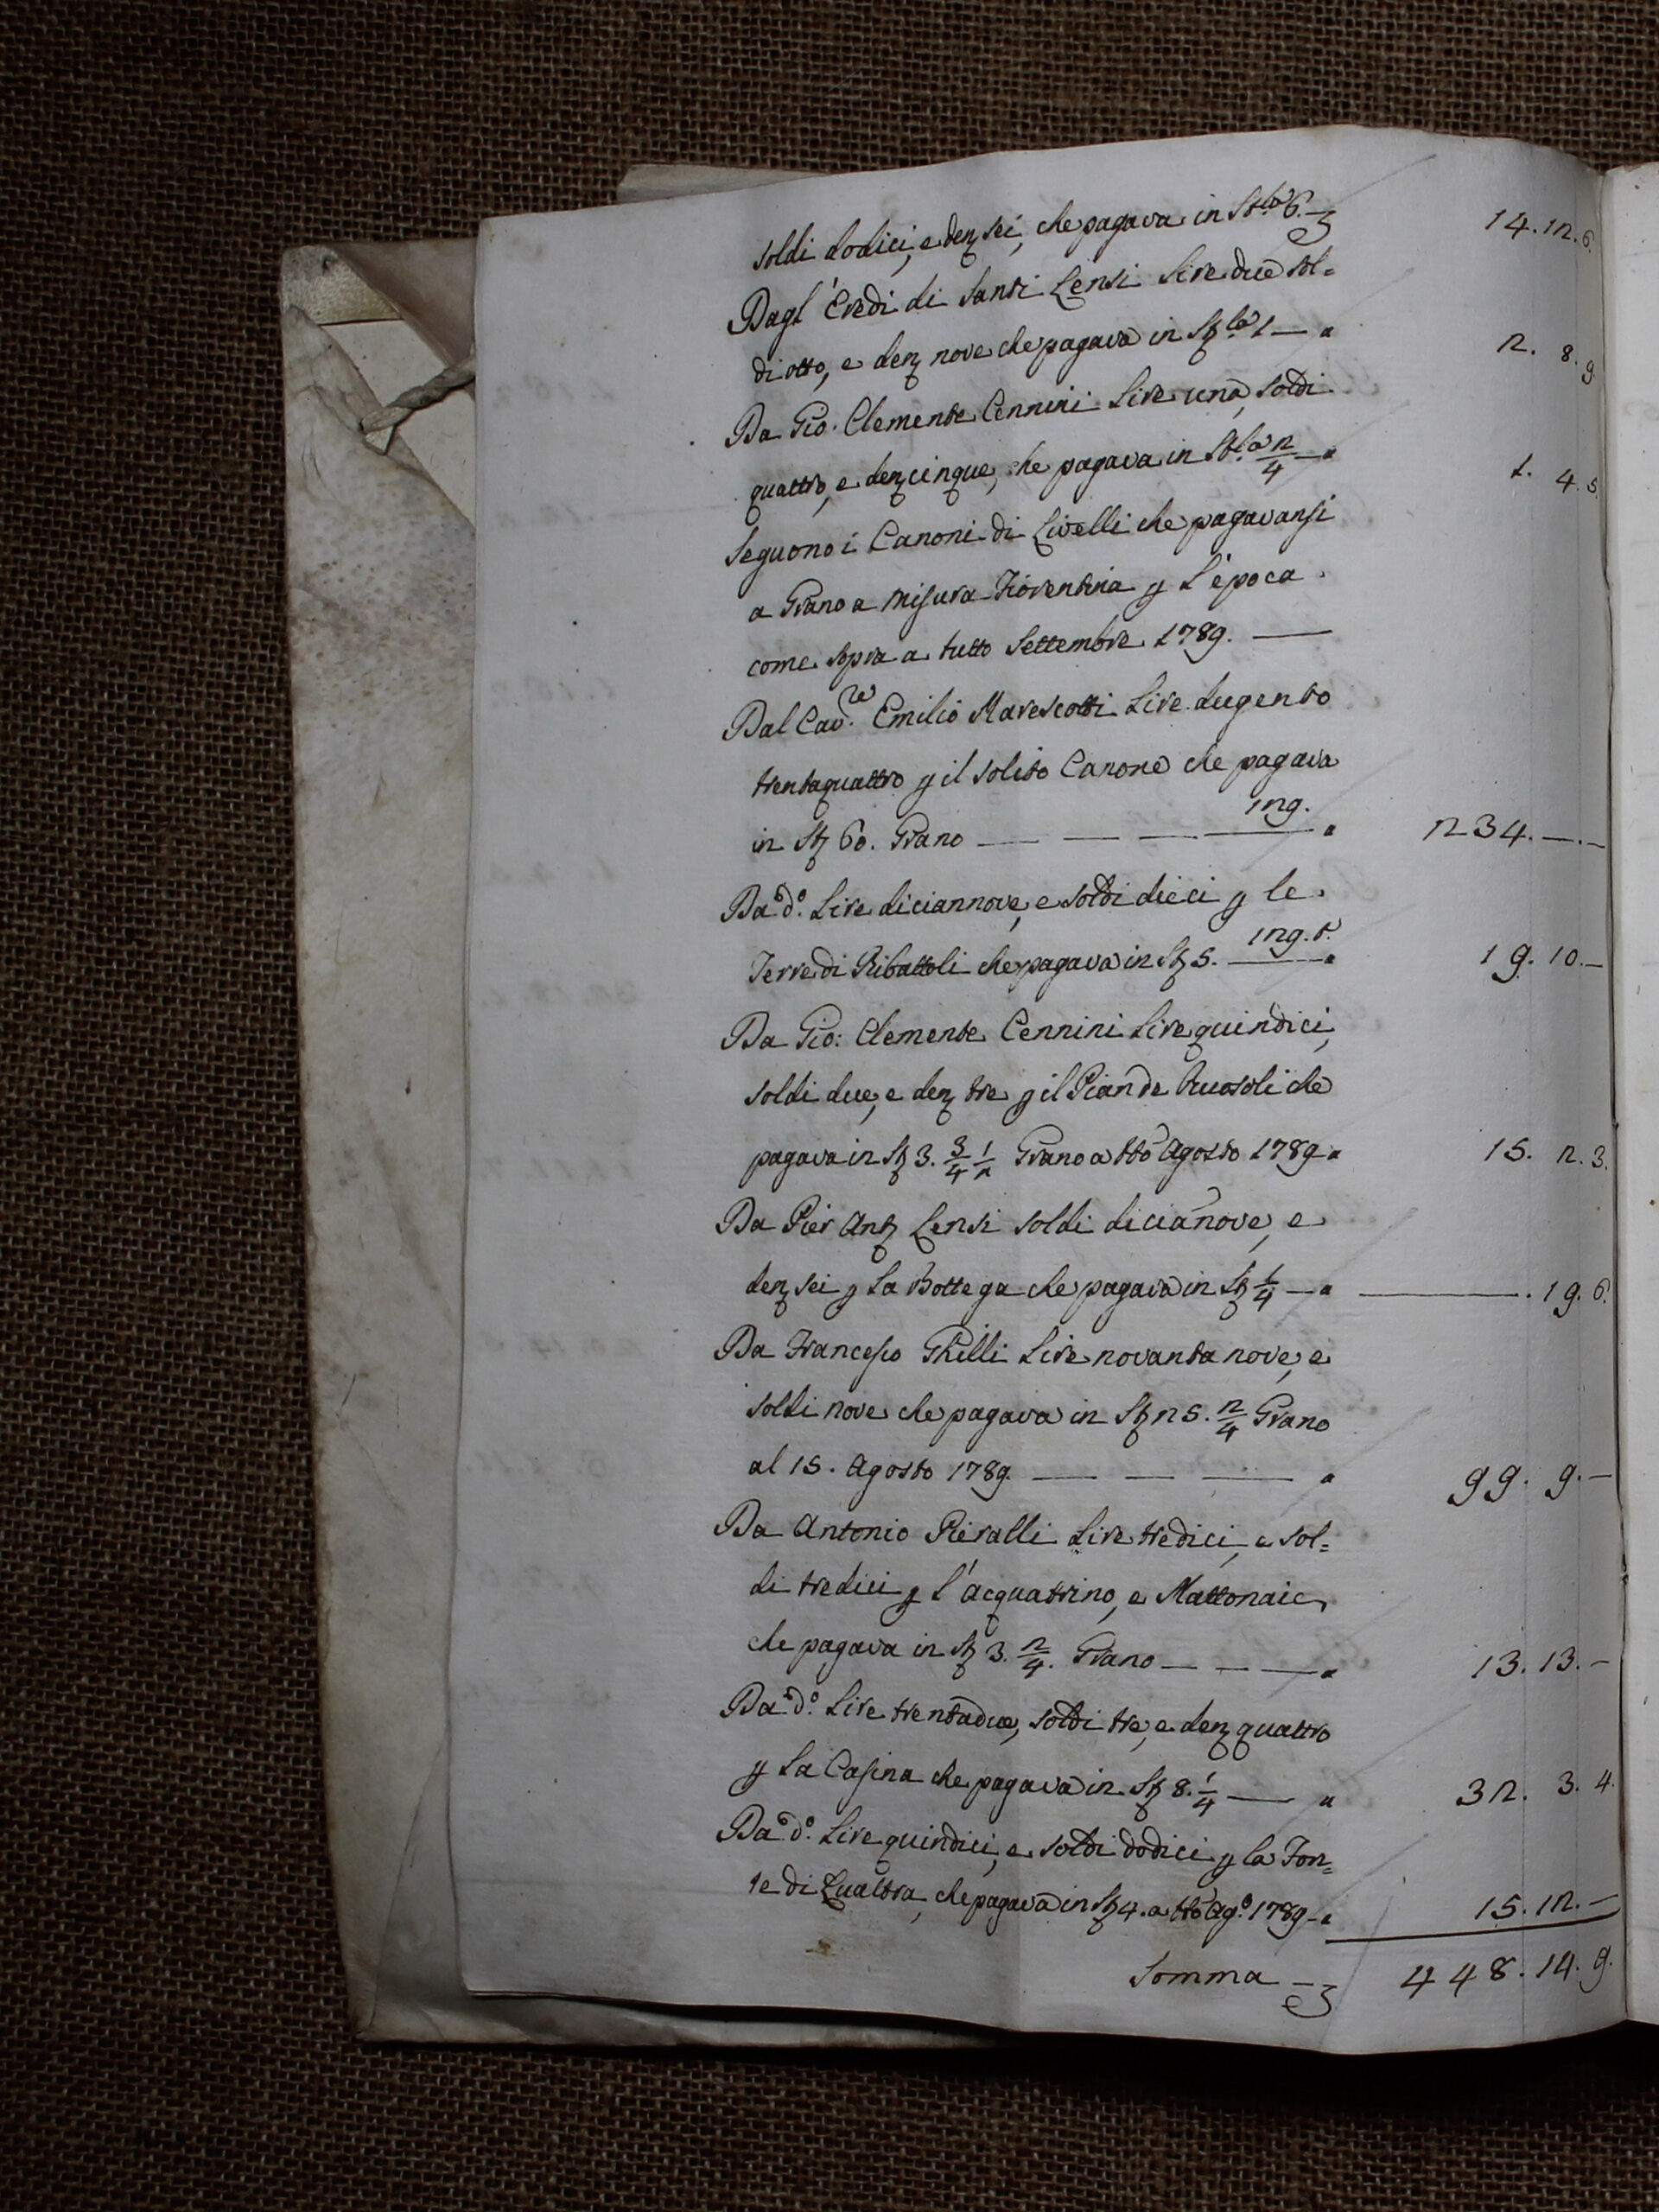 soldi dodici, e den sei, che pagava in St.la 6. — 14. 12. 6.
Dagl' Eredi di Santi Lensi Lire due sol=
di otto, e den nove che pagava in St.la 1 — 2. 8. 9.
Da Gio. Clemente Cennini Lire una, soldi
quattro, e den cinque, che pagava in St.la 2/4 — 1. 4. 5.
Seguono i Canoni di Livelli che pagavansi
a Grano a misura Fiorentina p L'epoca
come sopra a tutto Settembre 1789. —
Dal Cav.re Emilio Marescotti Lire dugento
trentaquattro p il solito Canone che pagava
in St 60. Grano — — — 129. 234. — . —
Da d.o Lire diciannove, e soldi dieci p le
Terre di Ribattoli che pagava in St 5. — 129. t. 19. 10. —
Da Gio: Clemente Cennini Lire quindici,
soldi due, e den tre p il Pian de che
pagava in St 3. 3/4 1/2 Grano a tto Agosto 1789 15. 2. 3.
Da Pier Ant Lensi soldi dicianove, e
den sei p La Bottega che pagava in St 1/4 — . 19. 6.
Da Francesco Ghilli Lire novanta nove, e
soldi nove che pagava in St 25. 2/4 Grano
al 15. Agosto 1789. — — — 99. 9. —
Da Antonio Pieralli Lire tredici, e sol=
di tredici p L'acquatrino, e Mattonaie,
che pagava in St 3. 2/4. Grano — — — 13. 13. —
Da d.o Lire trentadue, soldi tre, e den quattro
p La Casina che pagava in St 8. 1/4 — 32. 3. 4.
Da d.o Lire quindici, e soldi dodici p la Fon=
te di che pagava in St 4. a tto Ag.o 1789 — 15. 12. —
Somma — 448. 14. 9.